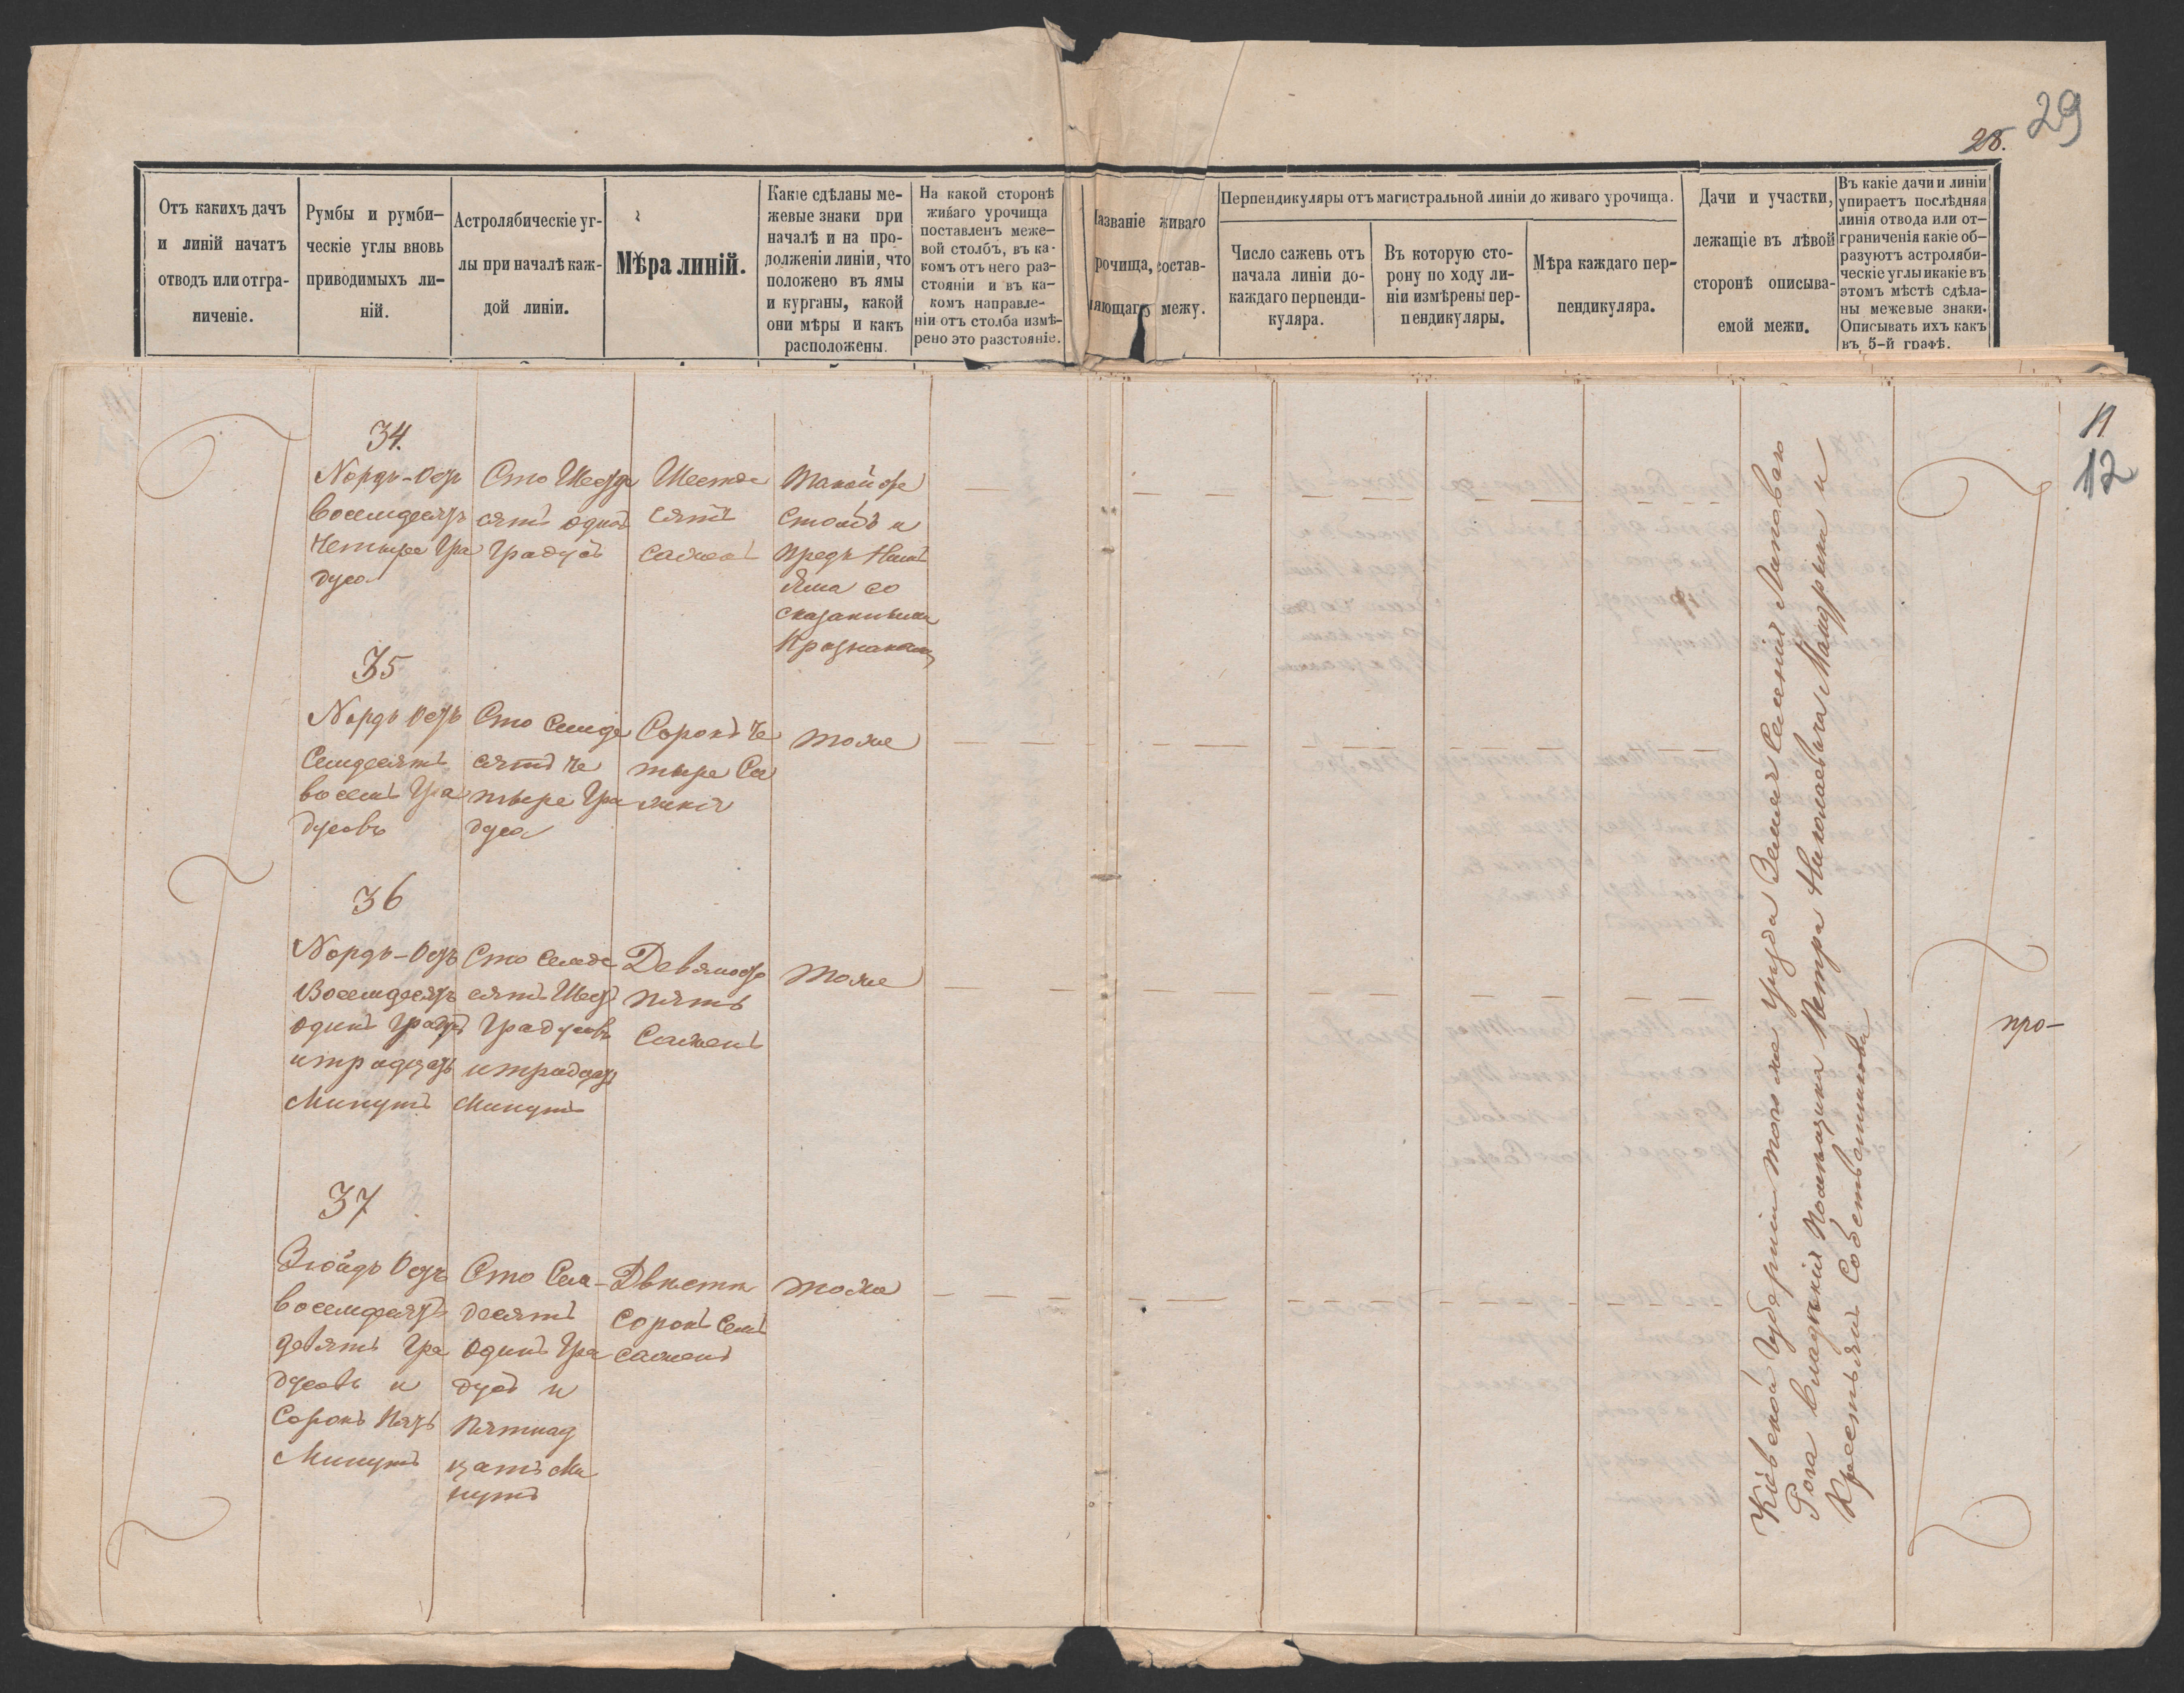 29
28.
Отъ какихъ дачъ
и линій начатъ
отводъ или отгра-
ниченіе.
Румбы и румби-
ческіе углы вновь
приводимыхъ ли-
ній.
Астролябическіе уг-
лы при началѣ каж-
дой линіи.
Мѣра линій.
Какіе сдѣланы ме-
жевые знаки при
началѣ и на про-
долженіи линіи, что
положено въ ямы
и курганы, какой
они мѣры и какъ
расположены.
На какой сторонѣ
живаго урочища
поставленъ меже-
вой столбъ, въ ка-
комъ отъ него раз-
стояніи и въ ка-
комъ направле-
ніи отъ столба измѣ-
рено это разстояніе.
Названіе живаго
рочища, состав-
ляющаго межу.
Перпендикуляры отъ магистральной линіи до живаго урочища.
Число сажень отъ
начала линіи до
каждаго перпенди-
куляра.
Въ которую сто-
рону по ходу ли-
ніи измѣрены пер-
пендикуляры.
Мѣра каждаго пер-
пендикуляра.
Дачи и участки,
лежащіе въ лѣвой
сторонѣ описыва-
емой межи.
Въ какіе дачи и линіи
упираетъ послѣдняя
линія отвода или от-
граниченія какіе об-
разуютъ астроляби-
ческіе углы и какіе въ
этомъ мѣстѣ сдѣла-
ны межевые знаки.
Описывать ихъ какъ
въ 5-й графѣ.
11
12
34.
Нордъ-Остъ
восемдесятъ
четыре Гра
дуса
Сто Шестде
сятъ одинъ
Градусъ
Шестде
сятъ
сажень
Такой же
Столбъ и
предъ Нимъ
Яма со
сказанными
Признаками
35
Нордъ Остъ
Семдесятъ
восемь Гра
дусовъ
Сто Семде
сятъ Че
тыре Гра
дуса
Сорокъ Че
тыре Са
жня
тоже
36
Нордъ-Остъ
Восемдесятъ
одинъ градусъ
и тридцать
Минутъ
Сто Семде
сятъ Шесть
Градусовъ
и тридцать
Минутъ
Девяносто
пять
Сажень
тоже
37
Зюйдъ Остъ
восемдесятъ
девять Гра
дусовъ и
Сорокъ Пять
Минутъ
Сто Сем-
десятъ
Одинъ Гра
дусъ и
Пятнад
цать Ми
нутъ
Двѣсти
Сорокъ Семь
сажень
тоже
Кіевской Губерніи того же уѣзда Земля Селенія Липоваго
Рога владѣнія Помѣщика Петра Николаевича Мандрыки и
Крестьянъ Собственниковъ
про-